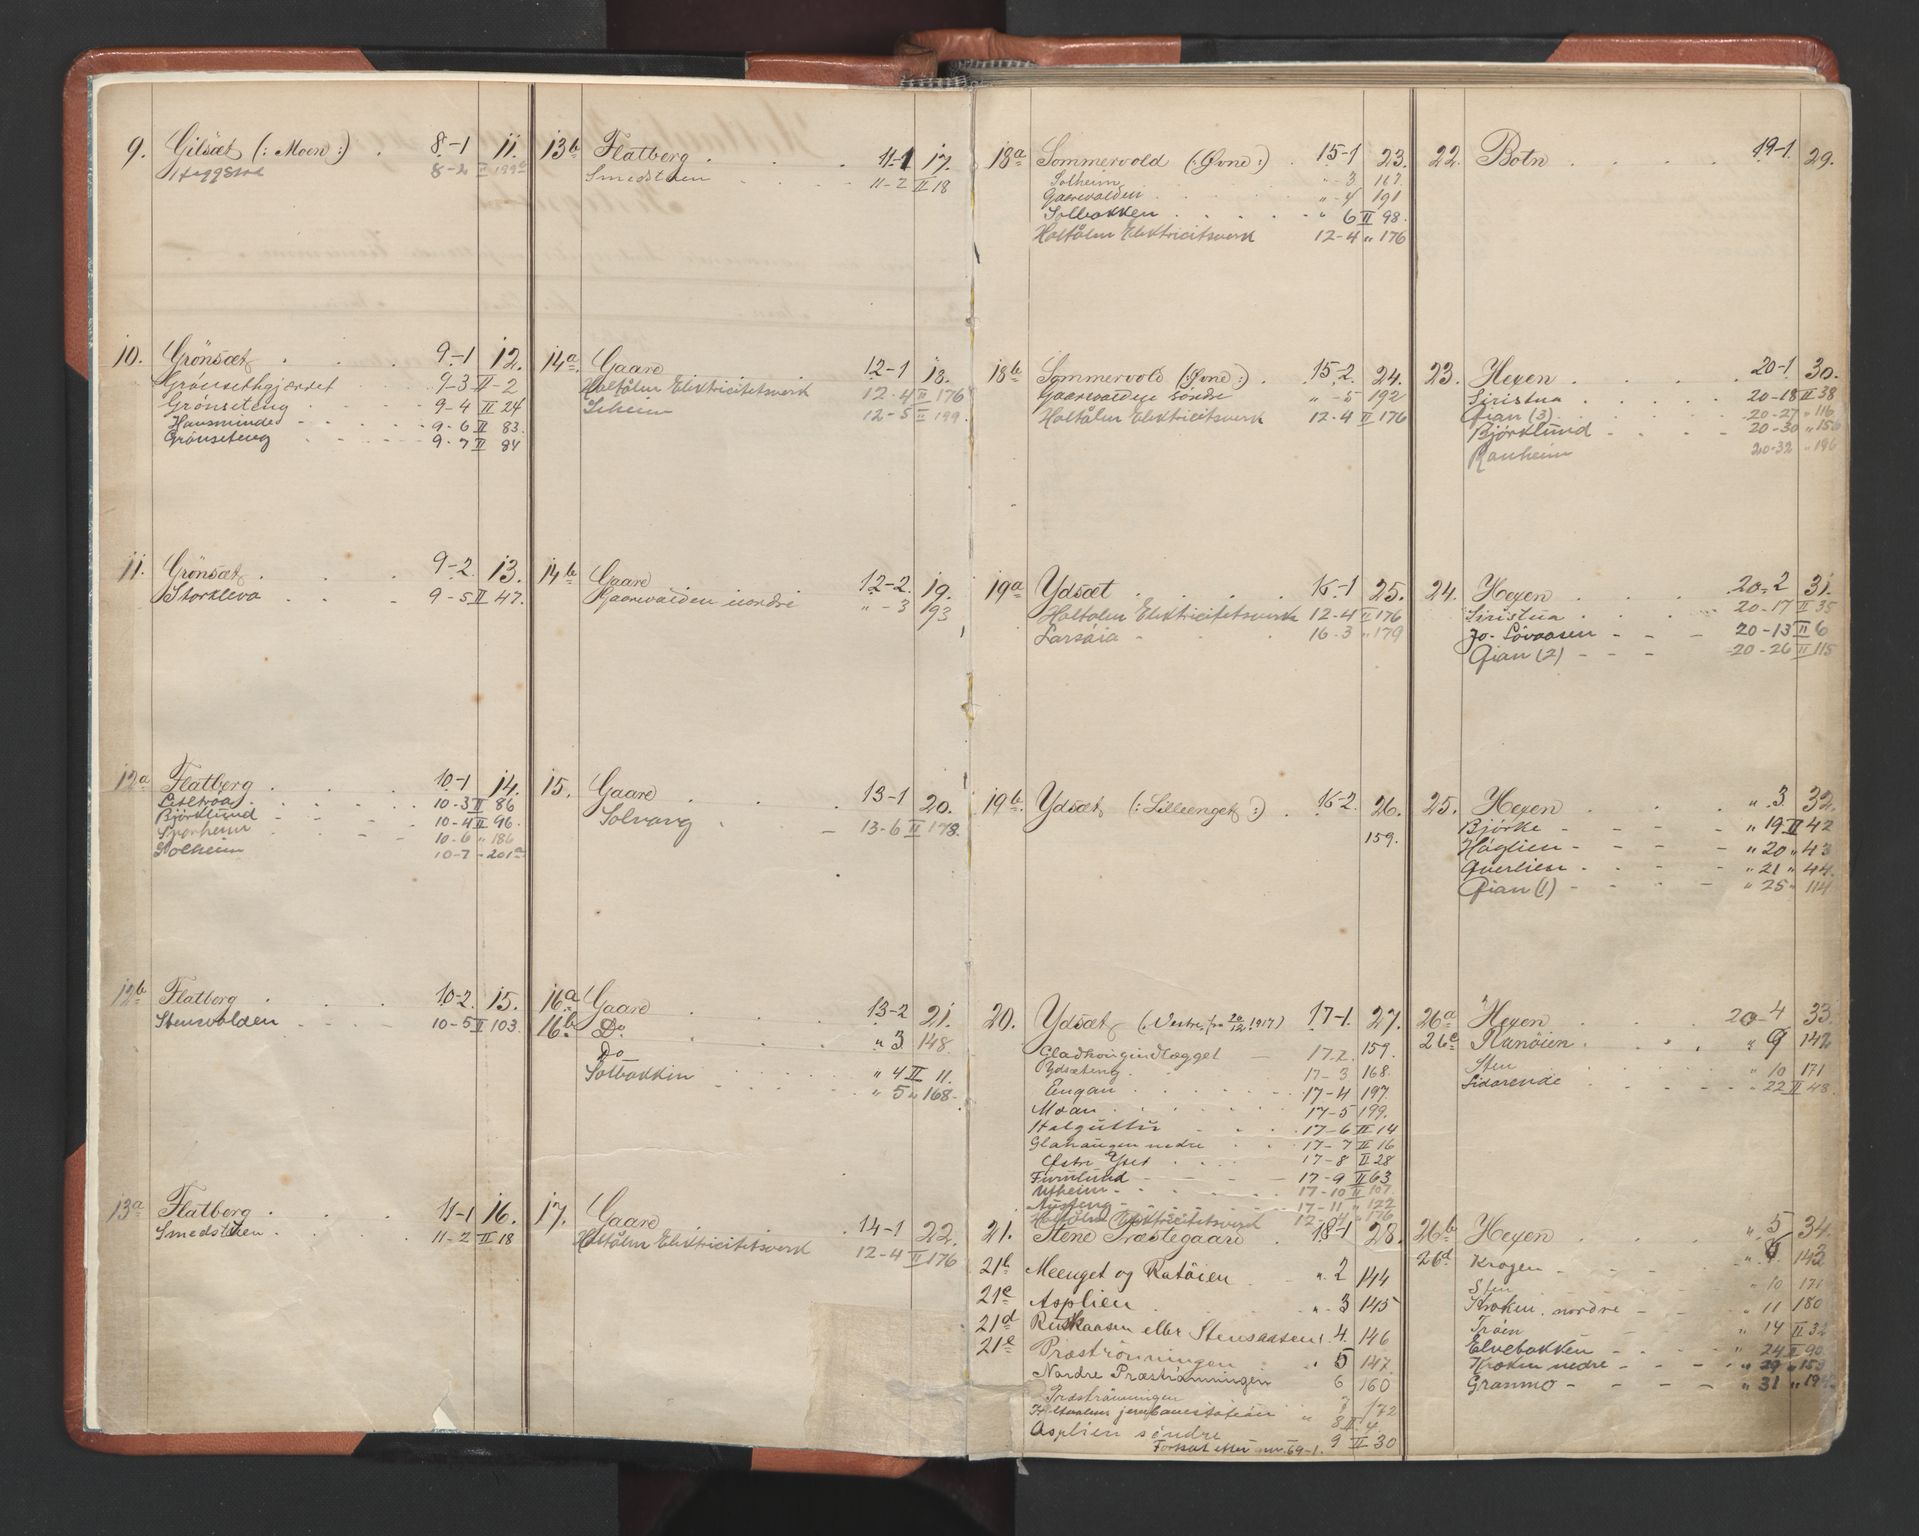 9. Gilsæt (: Moen :) . 8-1 11.
Haggstad 8-2 II 199a
10. Grönsæt . . . 9-1 12.
Grønsethgjærdet 9-3 II-2
Grønseteng 9-4 II 24
Hansminde 9-6 II 83.
Grønseteng 9-7 II 84
11. Grönsæt . . . 9-2. 13.
Storkleva . . . 9-5 II 47.
12a Flatberg . . . 10-1 14.
Litltrøa 10-3 II 86
Bjørklund 10-4 II 96.
10-6 " 186
Solheim 10-7 - 201a
12b Flatberg . . . 10-2. 15.
Stensvolden 10-5 II 103.
13a Flatberg . . . 11-1 16.
Smedstuen 11-2 II 18
13b Flatberg . . . 11-1 17.
Smedstuen 11-2 II 18
14a Gaare . . . 12-1 18.
Holtålen Elektricitetsverk 12-4 II 176
Seheim 12-5 II 199.
14b Gaare . . . 12-2. 19.
Gaarevolden nordre " -3 193
15. Gaare . . . 13-1 20.
Solvang 13-6 II 178.
16a Gaare . . . 13-2 21.
16b Do . . . " 3 148.
Do " 4 II 11.
Solbakken " 5 " 168.
17. Gaare . . . 14-1 22.
Holtålen Elektricitetsverk 12-4 II 176
18a Sommervold (: Øvne :) . 15-1 23.
Solheim " -3. 167.
Gaarevolden " -4 191
Solbakken . . . " 6 II 98.
Holtålen Elektricitetsverk 12-4 " 176
18b Sommervold (: Øvne :) . 15-2. 24.
Gaarevolden søndre " -5 192
Holtålen Elektricitetsverk 12-4 II 176
19a Ydsæt . . . 16-1 25.
Holtålen Elektricitetsverk 12-4 II 176
Larsøia 16-3 " 179
19b Ydsæt (: Lilleenget :) . 16-2. 26.
159.
20. Ydsæt (: Vestre, fra 20/12 1917) 17-1. 27.
Gladhouginlægget 17-2. 159.
Ydsæteng 17-3 168.
Engan 17-4 197.
Moan 17-5 199.
Halguttu 17-6 II 14
Glahaugen nedre 17-7 II 16
Østre Yset 17-8 II 28
Furulund 17-9 II 63
Utheim 17-10 II 107
Nysteng 17-11 " 122
Holtålen Elektricitetsverk 12-4 " 176
21. Stene Præstegaard . 18-1 28.
21b Meenget og Ratøien " 2 144
21c Asplien " 3 145
21d Ruskaasen eller Stensaasen 4. 146
21e Præstrønningen " 5 147.
Nordre Præstrønningen 6 160
Præstrønningen 7 172
Holtaalens jernbanestation " 8 II 4
Asplien søndre 9 II 30
Fortsat efter nr. 69-1.
22. Botn . . . 19-1 29.
23. Hexen . . . 20-1 30.
Siristua 20-18 II 38
Øian (3) 20-27 " 116
Bjørklund 20-30 " 156
Ranheim 20-32 " 196
24. Hexen . . . 20-2 31.
Siristua 20-17 II 35
Jo-Løvaasen 20-13 II 6
Øian (2) 20-26 II 115
25. Hexen . . . " 3. 32.
Bjørke " 19 II 42
Høglien " 20 " 43
Qverlien " 21 " 44.
Øian (1) " 25 " 114
26a Hexen . . . 20-4 33.
26c Flanøien " 9 142
Sten " 10 171
Sidarende " 22 II 48.
26b Hexen . . . " 5 34.
26d Krogen 143
Sten " 10 171
Kroken nordre " 11 180
Trøen " 14 II 32
Elvebakken " 24 II 90
Kroken nedre " 29 " 153
Granmo " 31 " 194